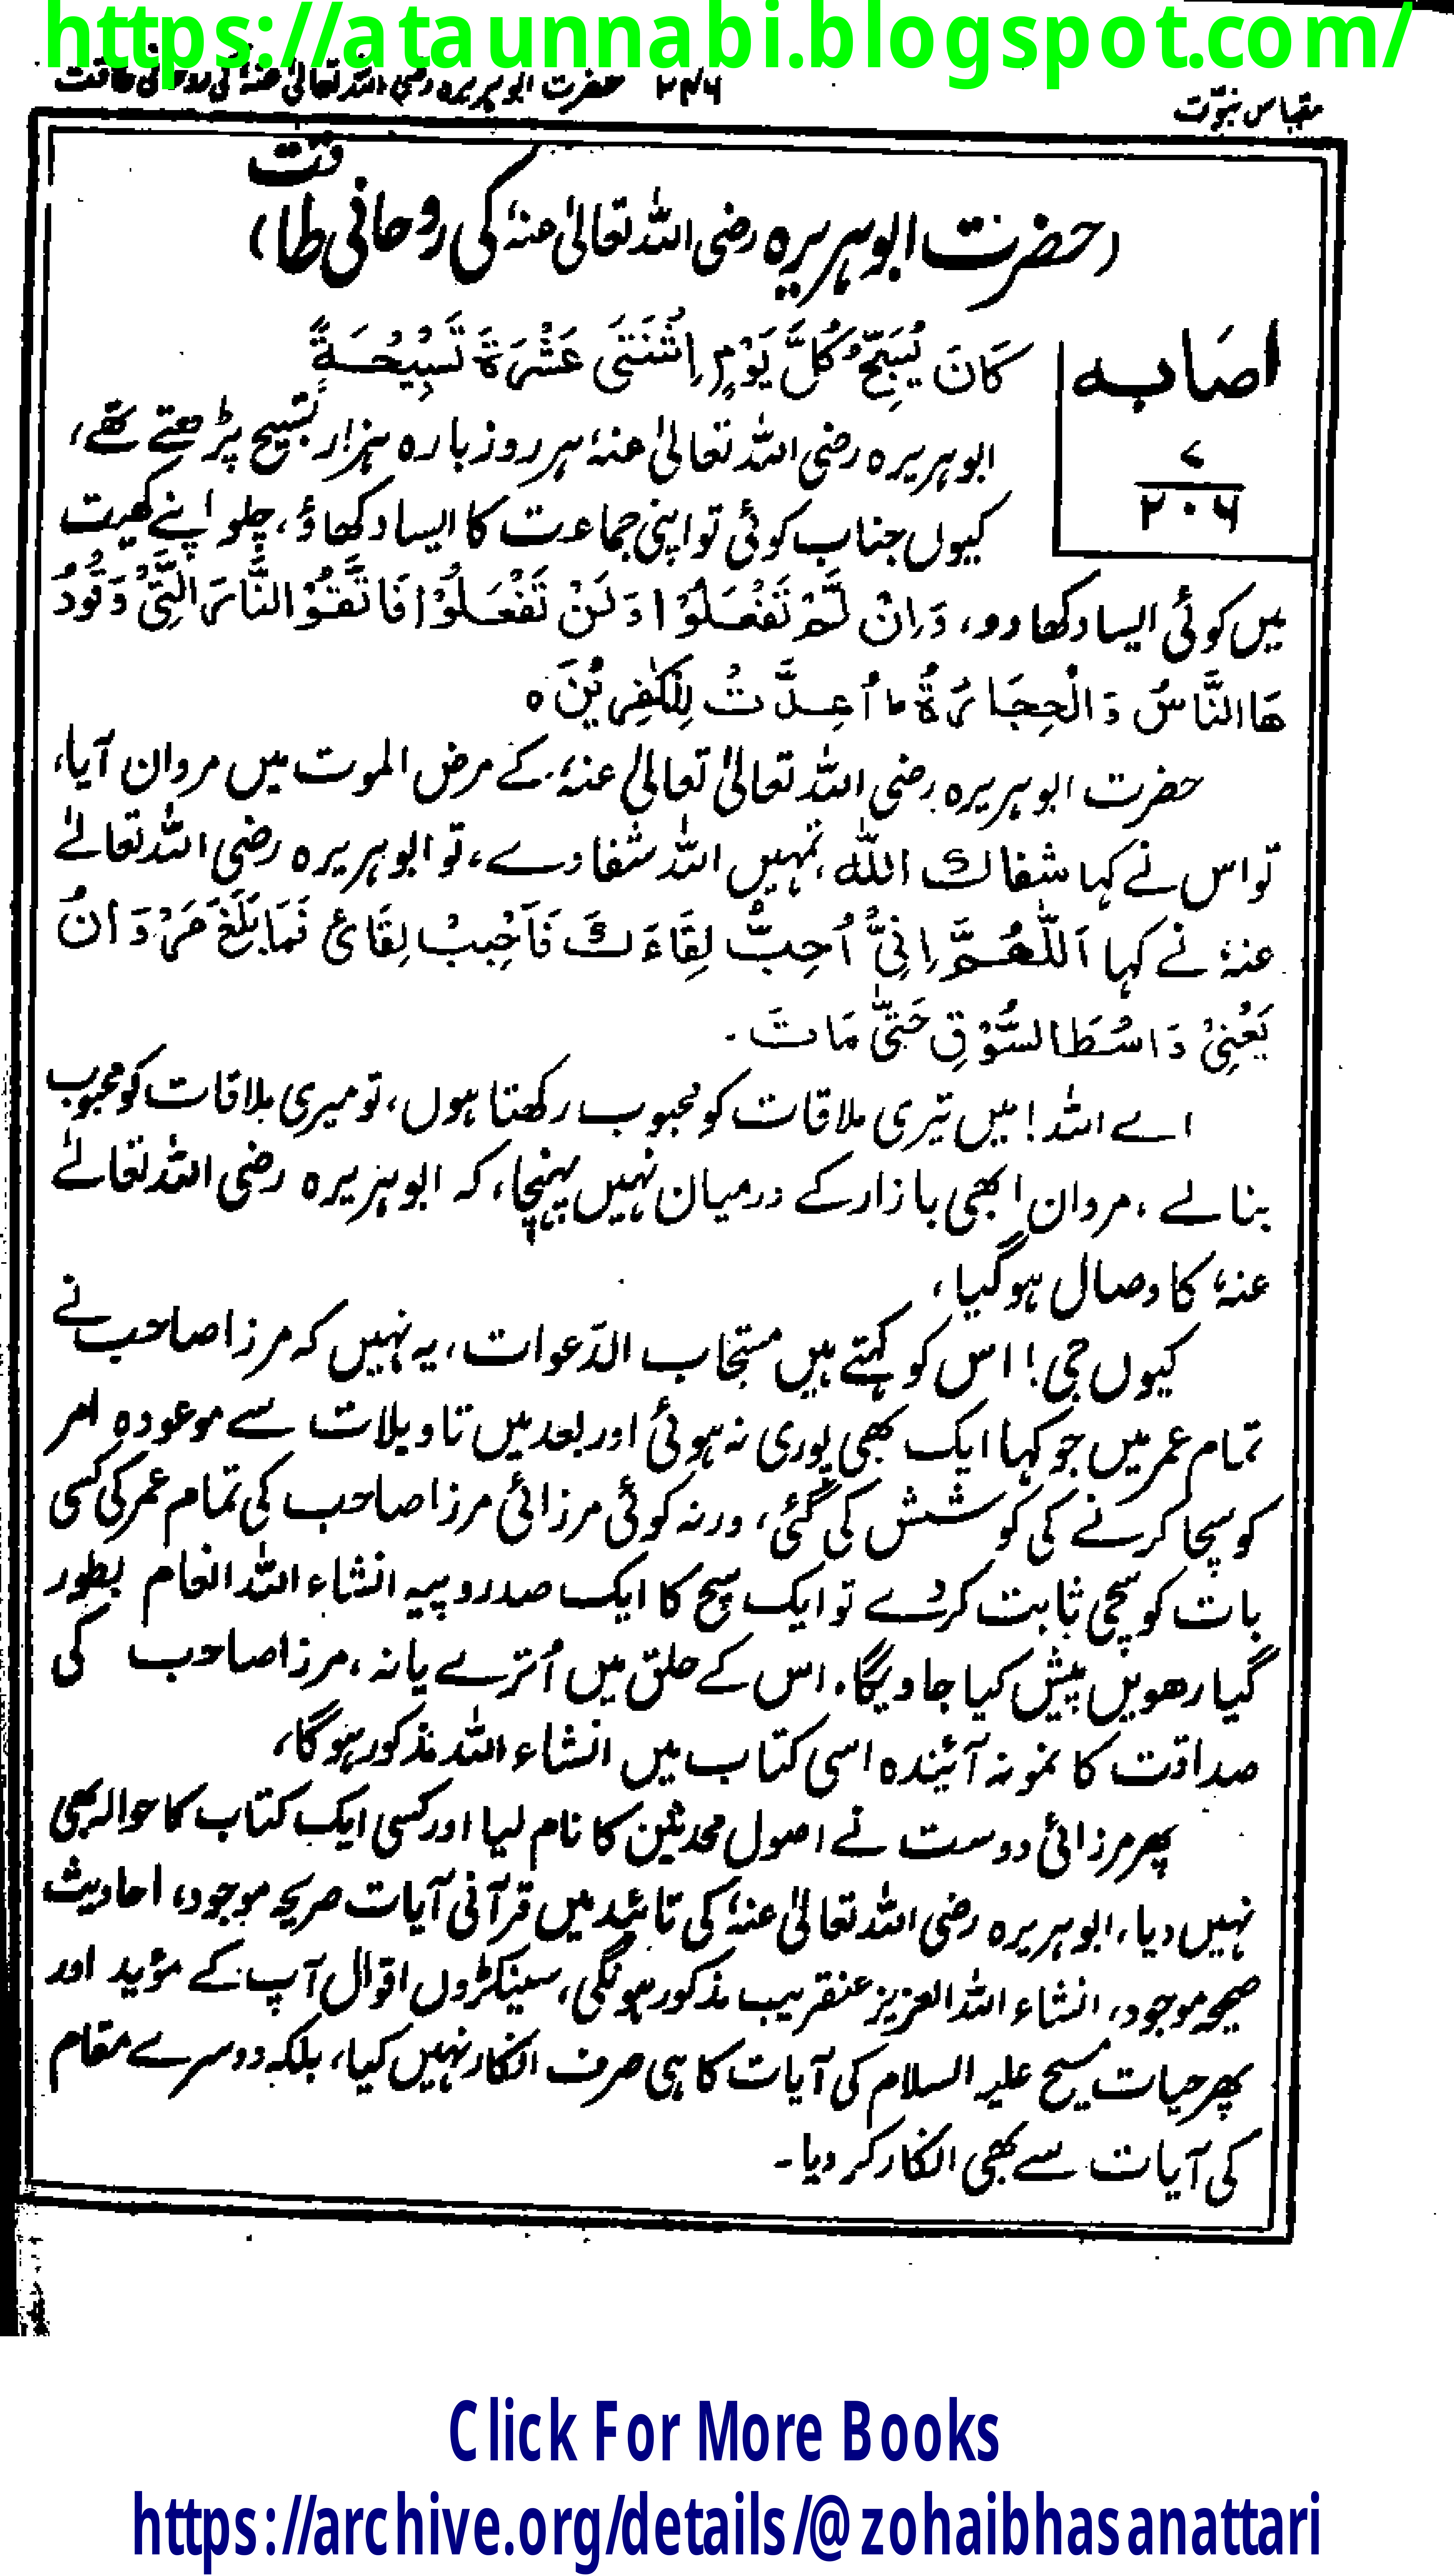 https://ataunnabi.blogspot.com/
مقیاس نبوّت ۲۴۶ حضرت ابوہریرہ رضی اللہ تعالیٰ عنہٗ کی روحانی طاقت
(حضرت ابوہریرہ رضی اللہ تعالیٰ عنہٗ کی روحانی طاقت)
اصابہ
۷
۲۰۶
کَانَ یُسَبِّحُ کُلَّ یَوْمٍ اِثْنَتَی عَشْرَۃَ تَسْبِیْحَۃً
ابوہریرہ رضی اللہ تعالیٰ عنہٗ ہر روز بارہ ہزار تسبیح پڑھتے تھے،
کیوں جناب کوئی تو اپنی جماعت کا ایسا دکھاؤ، چلو اپنے کھیت
میں کوئی ایسا دکھا دو، وَاِنْ لَّمْ تَفْعَلُوْا وَلَنْ تَفْعَلُوْا فَاتَّقُوْا النَّارَ الَّتِیْ وَقُوْدُ
ھَا النَّاسُ وَالْحِجَارَۃُ ط اُعِدَّتْ لِلْکٰفِرِیْنَ ہ
حضرت ابوہریرہ رضی اللہ تعالیٰ تعالیٰ عنہٗ کے مرض الموت میں مروان آیا،
تو اس نے کہا شفاك الله، تمہیں اللہ شفا دے، تو ابوہریرہ رضی اللہ تعالےٰ
عنہٗ نے کہا اَللّٰھُمَّ اِنِّیْ اُحِبُّ لِقَاءَكَ فَاَحْبِبْ لِقَائِ فَمَا بَلَغَ مَرْوَانُ
یَعْنِیْ وَاسُطَ السُّوْقِ حَتّٰی مَاتَ ۔
اے اللہ! میں تیری ملاقات کو محبوب رکھتا ہوں، تو میری ملاقات کو محبوب
بنالے، مروان ابھی بازار کے درمیان نہیں پہنچا، کہ ابوہریرہ رضی اللہ تعالےٰ
عنہٗ کا وصال ہوگیا،
کیوں جی! اس کو کہتے ہیں مستجاب الدّعوات، یہ نہیں کہ مرزا صاحب نے
تمام عمر میں جو کہا ایک بھی پوری نہ ہوئی اور بعد میں تاویلات سے موعودہ امر
کو سچا کرنے کی کوشش کی گئی، ورنہ کوئی مرزائی مرزا صاحب کی تمام عمر کی کسی
بات کو سچی ثابت کردے تو ایک سچ کا ایک صد روپیہ انشاء اللہ انعام بطور
گیارھویں پیش کیا جاویگا۔ اس کے حلق میں اُترے یا نہ، مرزا صاحب کی
صداقت کا نمونہ آئیندہ اسی کتاب میں انشاء اللہ مذکور ہوگا،
پھر مرزائی دوست نے اصول محدثین کا نام لیا اور کسی ایک کتاب کا حوالہ بھی
نہیں دیا، ابوہریرہ رضی اللہ تعالیٰ عنہٗ کی تائید میں قرآنی آیات صریحہ موجود، احادیث
صحیحہ موجود، انشاء اللہ العزیز عنقریب مذکور ہونگی، سینکڑوں اقوال آپ کے مؤید اور
پھر حیات مسیح علیہ السلام کی آیات کا ہی صرف انکار نہیں کیا، بلکہ دوسرے مقام
کی آیات سے بھی انکار کر دیا۔
Click For More Books
https://archive.org/details/@zohaibhasanattari